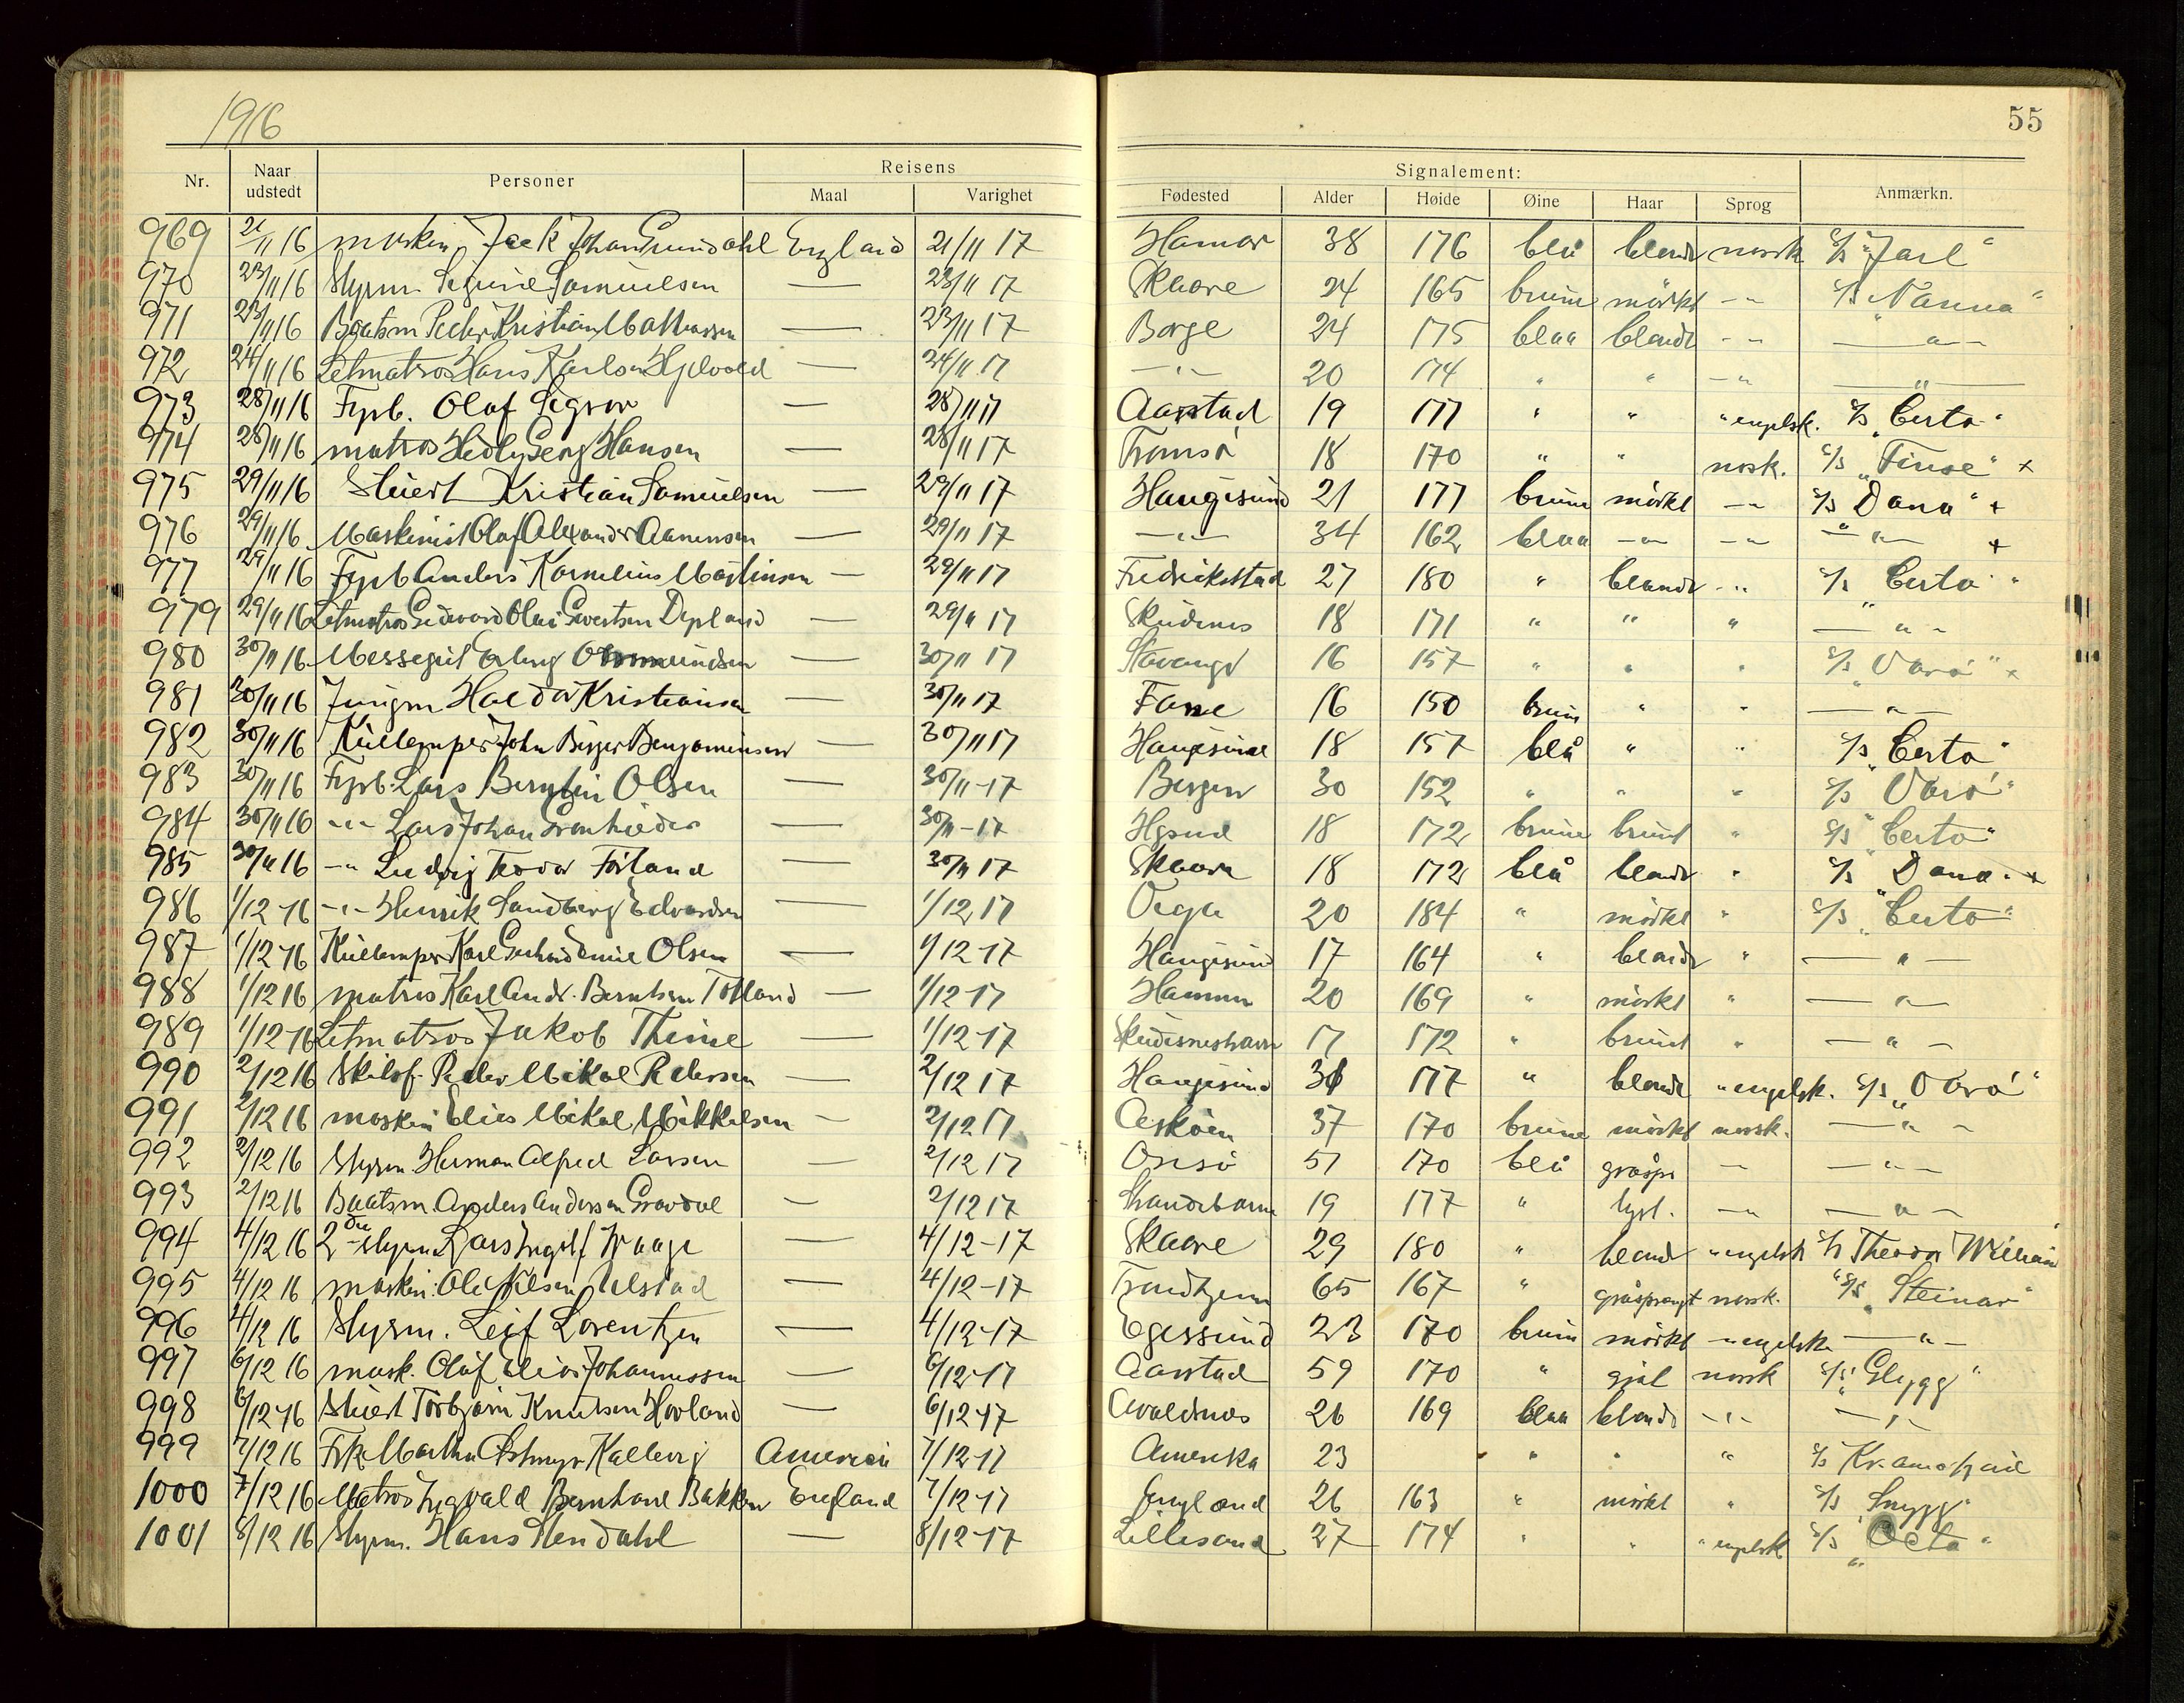 1916
55
Nr. Naar udstedt Personer Reisens Maal Varighet Fødested Signalement: Alder Høide Øine Haar Sprog Anmærkn.
969 21/11 16 maskin Johan Grundahl England 21/11 17 Hamar 38 176 blå blondt norsk S/S "Jarl"
970 23/11 16 Styrm. Sigurd Samuelsen — 23/11 17 Skaare 24 165 brune mörkt -"- S/S "Nanna"
971 23/11 16 Baatsm Peder Kristian Mathiassen — 23/11 17 Borge 24 175 blaa blondt -"- —"—
972 24/11 16 Letmatros Hans Karlsen — 24/11 17 —"— 20 174 " " -"- —"—
973 28/11 16 Fyrb. Olaf — 28/11 17 Aarstad 19 177 " " " engelsk. S/S "Certo"
974 28/11 16 matros Hansen — 28/11 17 Tromsö 18 170 " " norsk. S/S "Finse" x
975 29/11 16 Stuert Kristian Samuelsen — 29/11 17 Haugesund 21 177 brune mörkt -"- S/S "Dana" x
976 29/11 16 Maskinist Olaf Alexander Aanensen — 29/11 17 —"— 34 162 blaa -"- -"- —"— x
977 29/11 16 Fyrb Anders Kornelius Martinsen — 29/11 17 Fredrikstad 27 180 " blondt -"- S/S "Certo"
979 29/11 16 Letmatros Edevard — 29/11 17 Skudenes 18 171 " " " —"—
980 30/11 16 Messegut Erling — 30/11 17 Stavanger 16 157 " " " S/S "Varö" x
981 30/11 16 Jungm Haldor Kristiansen — 30/11 17 16 150 brun " " —"—
982 30/11 16 Kullemper John Birger Benjaminsen — 30/11 17 Haugesund 18 157 blå " " S/S "Certo"
983 30/11 16 Fyrb Lars Olsen — 30/11-17 Bergen 30 152 " " " S/S "Varö"
984 30/11 16 -"- Lars Johan — 30/11-17 Hgsund 18 172 brune brunt " S/S "Certo"
985 30/11 16 -"- Ludvig Teodor Förland — 30/11 17 Skaare 18 172 blå blondt " S/S "Dana" x
986 1/12-16 -"- Henrik Sandberg Edvardsen — 1/12 17 Vega 20 184 " mörkt " S/S "Certo"
987 1/12-16 Kullemper Karl Olsen — 1/12-17 Haugesund 17 164 " blondt " —"—
988 1/12 16 matros Karl Andr. Berntsen Totland — 1/12-17 20 169 " mörkt " —"—
989 1/12-16 Letmatros Jakob — 1/12-17 Skudesneshavn 17 172 " brunt " —"—
990 2/12 16 Peder Mikal Pedersen — 2/12 17 Haugesund 177 " blondt " engelsk. S/S "Varö"
991 2/12 16 maskin Elias Mikal Mikkelsen — 2/12 17 Asköen 37 170 brune mörkt norsk. —"—
992 2/12 16 Styrm. Herman Alfred Larsen — 2/12 17 51 170 blå gråspr -"- —"—
993 2/12 16 Baatsm. Anders Andersen Gravdal — 2/12 17 Strandebarm 19 177 " lyst. -"- —"—
994 4/12 16 2den Styrm Lars Waage — 4/12-17 Skaare 29 180 " blondt " engelsk S/S Theodor William
995 4/12 16 maskin. Ole Nilsen Ulstad — 4/12-17 Trondhjem 65 167 " gråsprengt norsk. S/S "Steinar"
996 4/12 16 Styrm. Leif Lorentzen — 4/12-17 Egersund 23 170 brune mörkt -"- engelsk —"—
997 6/12 16 mask. Olaf Elias Johannessen — 6/12-17 Aarstad 59 170 " grål norsk S/S "Glygg"
998 6/12-16 Stuert Torbjörn Knutsen Hovland — 6/12-17 Avaldsnes 26 169 blaa blondt -"- —"—
999 7/12 16 Frk Martha Kalberg Amerika 7/12-17 Amerika 23 " " " S/S
1000 7/12 16 Matros Ingvald Bernhard Bakken England 7/12-17 England 26 163 " mörkt " S/S "Snygg"
1001 8/12 16 Styrm. Hans Stendahl — 8/12-17 Lillesand 27 174 " " " engelsk S/S "Octa"